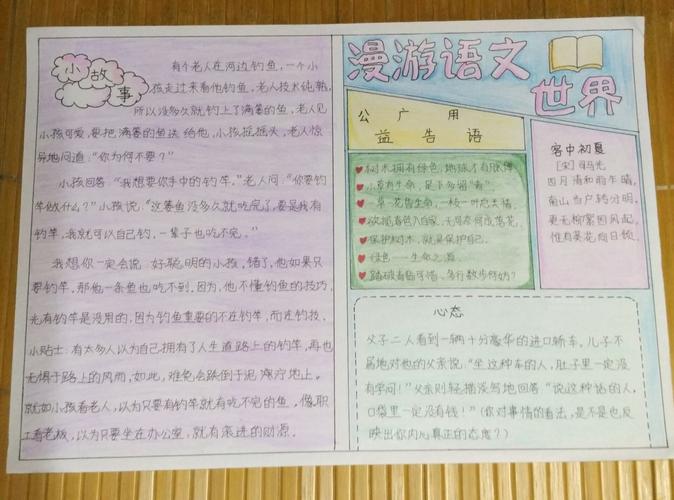 小故事
有个老人在河边钓鱼，一个小
孩走过来看他钓鱼，老人技术纯熟，
所以没多久就钓上了满篓的鱼，老人见
小孩可爱，要把满篓的鱼送给他，小孩摇摇头，老人惊
异地问道："你为何不要？"
小孩回答："我想要你手中的钓竿。"老人问："你要钓
竿做什么？"小孩说："这篓鱼没多久就吃完了，要是我有
钓竿，我就可以自己钓，一辈子也吃不完。"
我想你一定会说：好聪明的小孩，错了，他如果只
要钓竿。那他一条鱼也吃不到。因为，他不懂钓鱼的技巧，
光有钓竿是没用的，因为钓鱼重要的不在钓竿，而在钓技，
小贴士：有太多人以为自己拥有了人生道路上的钓竿，再也
无惧于路上的风雨，如此，难免会跌倒于泥泞地上。
就如小孩看老人，以为只要有钓竿就有吃不完的鱼。像职
工看老板，以为只要坐在办公室，就有滚进的财源。
漫游语文
世界
公广用
益告语
树木拥有绿色，地球才有脉搏
小草有生命，足下多留"青"
一草一花皆生命，一枝一叶总关情
保护树木，就是保护自己。
绿色——生命之源
客中初夏
[宋]司马光
四月清和雨乍晴，
南山当户转分明，
更无柳絮因风起，
惟有葵花向日倾。
心态
父子二人看到一辆十分豪华的进口轿车。儿子不
屑地对他的父亲说："坐这种车的人，肚子里一定没
有学问！"父亲则轻描淡写地回答："说这种话的人，
口袋里一定没有钱！"（你对事情的看法，是不是也反
映出你内心真正的态度？）